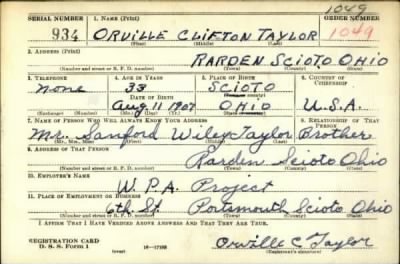 1049
SERIAL NUMBER 1. NAME (Print) ORDER NUMBER
934 ORVILLE CLIFTON TAYLOR 1049
(First) (Middle) (Last)
2. ADDRESS (Print)
RARDEN SCIOTO OHIO
(Number and street or R. F. D. number) (Town) (County) (State)
3. TELEPHONE 4. AGE IN YEARS 5. PLACE OF BIRTH 6. COUNTRY OF CITIZENSHIP
None 33 SCIOTO
DATE OF BIRTH (Town or county)
Aug 11 1907 OHIO U.S.A.
(Exchange) (Number) (Mo.) (Day) (Yr.) (State or country)
7. NAME OF PERSON WHO WILL ALWAYS KNOW YOUR ADDRESS 8. RELATIONSHIP OF THAT PERSON
Mr. Sanford Wiley Taylor Brother
(Mr., Mrs., Miss) (First) (Middle) (Last)
9. ADDRESS OF THAT PERSON
Rarden Scioto Ohio
(Number and street or R. F. D. number) (Town) (County) (State)
10. EMPLOYER'S NAME
W. P. A. Project
11. PLACE OF EMPLOYMENT OR BUSINESS
6th St. Portsmouth Scioto Ohio
(Number and street or R. F. D. number) (Town) (County) (State)
I AFFIRM THAT I HAVE VERIFIED ABOVE ANSWERS AND THAT THEY ARE TRUE.
REGISTRATION CARD
D. S. S. Form 1 (over) 16-17105 Orville C. Taylor
(Registrant's signature)